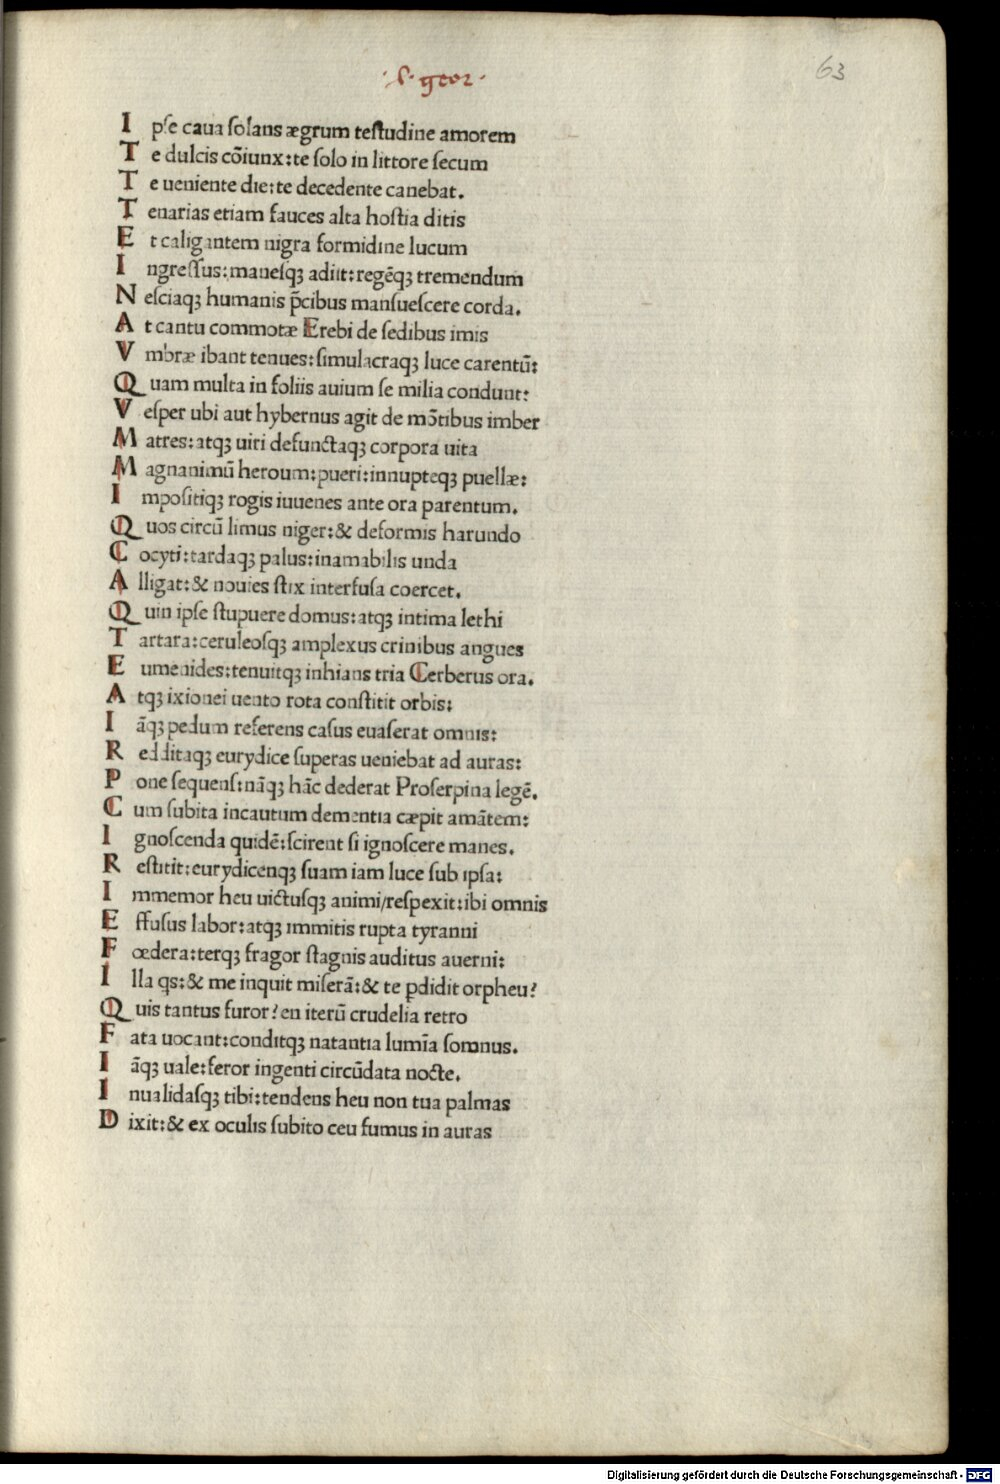 · geor ·
63
Ipſe caua ſolans ægrum teſtudine amorem
Te dulcis cõiunx: te ſolo in littore ſecum
Te ueniente die: te decedente canebat.
Tenarias etiam fauces alta hoſtia ditis
Et caligantem nigra formidine lucum
Ingreſſus: maneſqꝫ adiit: regẽqꝫ tremendum
Neſciaqꝫ humanis p̃cibus manſueſcere corda.
At cantu commotæ Erebi de ſedibus imis
Vmbræ ibant tenues: ſimulacraqꝫ luce carentũ:
Quam multa in foliis auium ſe milia condunt:
Veſper ubi aut hybernus agit de mõtibus imber
Matres: atqꝫ uiri defunctaqꝫ corpora uita
Magnanimũ heroum: pueri: innupteqꝫ puellæ:
Impoſitiqꝫ rogis iuuenes ante ora parentum.
Quos circũ limus niger: & deformis harundo
Cocyti: tardaqꝫ palus: inamabilis unda
Alligat: & nouies ſtix interfuſa coercet.
Quin ipſe ſtupuere domus: atqꝫ intima lethi
Tartara: ceruleoſqꝫ amplexus crinibus angues
Eumenides: tenuitqꝫ inhians tria Cerberus ora.
Atqꝫ ixionei uento rota conſtitit orbis:
Iãqꝫ pedum referens caſus euaſerat omnis:
Redditaqꝫ eurydice ſuperas ueniebat ad auras:
Pone ſequens: nãqꝫ hãc dederat Proſerpina legẽ.
Cum ſubita incautum dementia cæpit amãtem:
Ignoſcenda quidẽ: ſcirent ſi ignoſcere manes.
Reſtitit: eurydicenqꝫ ſuam iam luce ſub ipſa:
Immemor heu uictuſqꝫ animi/reſpexit: ibi omnis
Effuſus labor: atqꝫ immitis rupta tyranni
Fœdera: terqꝫ fragor ſtagnis auditus auerni:
Illa qs: & me inquit miſerã: & te ꝑdidit orpheu?
Quis tantus furor? en iterũ crudelia retro
Fata uocant: conditqꝫ natantia lumĩa ſomnus.
Iãqꝫ uale: feror ingenti circũdata nocte.
Inualidaſqꝫ tibi: tendens heu non tua palmas
Dixit: & ex oculis ſubito ceu fumus in auras
Digitalisierung gefördert durch die Deutsche Forschungsgemeinschaft - DFG